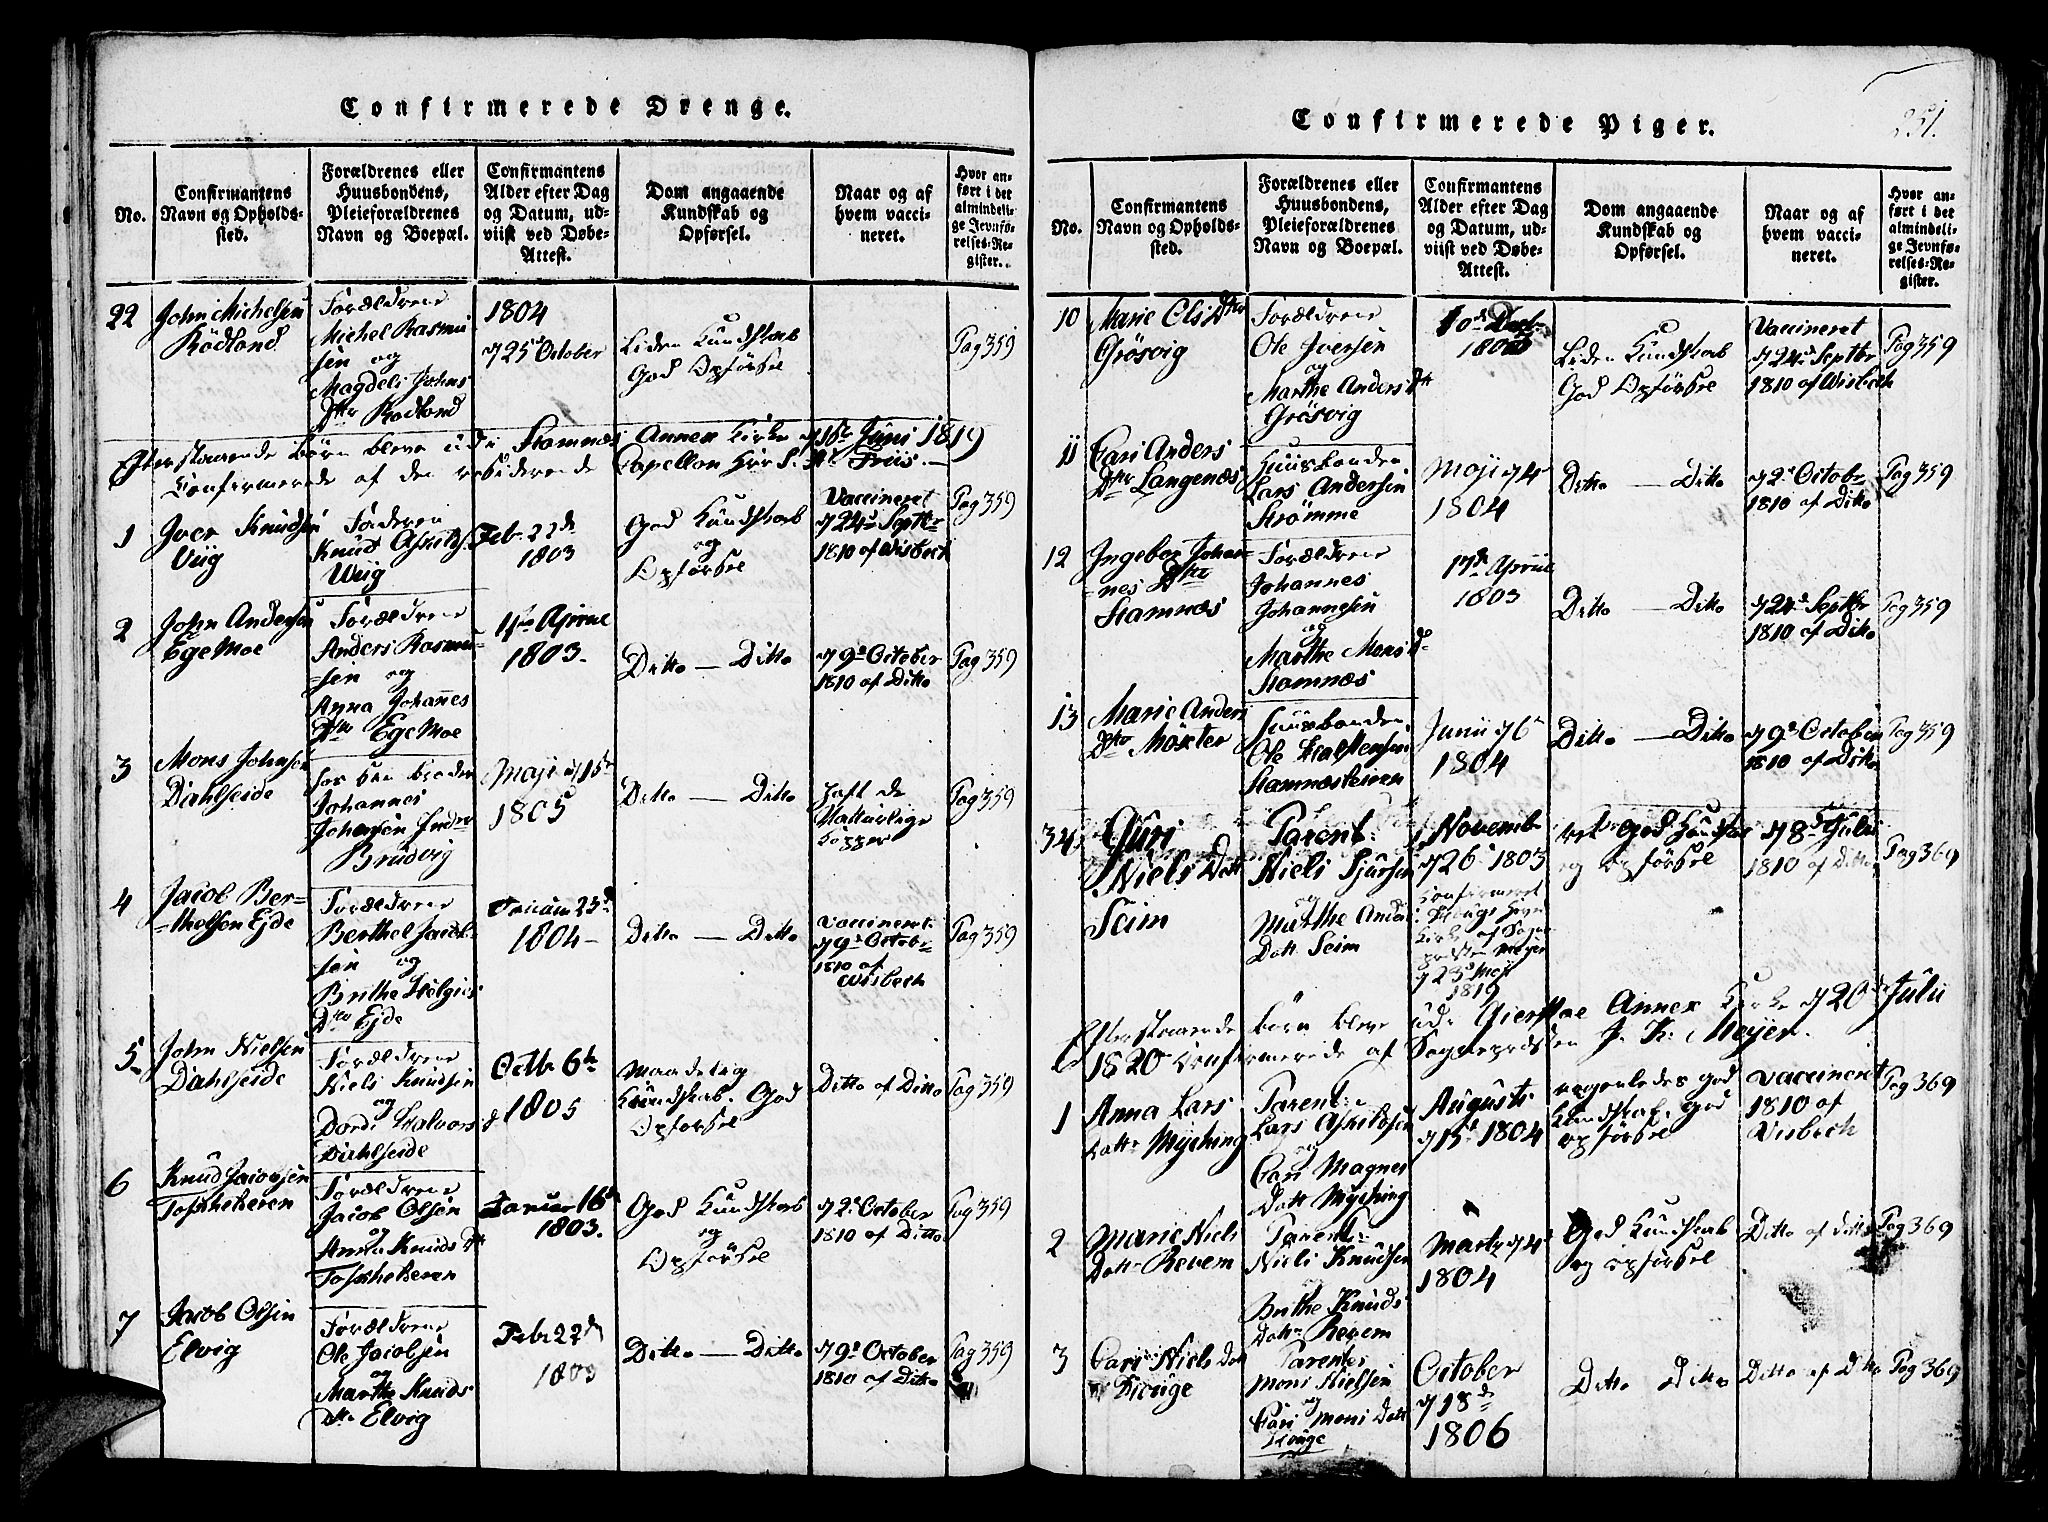 Confirmerede Drenge.
No.
Confirmantens
Navn og Opholds-
sted.
Forældrenes eller
Huusbondens,
Pleieforældrenes
Navn og Boepæl.
Confirmantens
Alder efter Dag
og Datum, ud-
viist ved Døbe-
Attest.
Dom angaaende
Kundskab og
Opførsel.
Naar og af
hvem vacci-
neret.
Hvor an-
ført i det
almindeli-
ge Jevnfø-
relses-Re-
gister.
22
John Michelsen
Rödland
Forældrene
Michel Rasmu
sen og
Magdeli Johns
Dtr Rödland
1804
d 25d October
Liden Kundskab
God Opførsel
Pag 359
Efterstaaende Börn bleve udi Stamnæs Annex Kirke d 16de Juni 1819
Confirmerede af den residerende Capellan Friis
1
Iver Knudsen
Viig
Knud
Wiig
Feb. 22d
1803
God Kundskab
og
Opførsel
Vaccineret
d 24d Septbr
1810 af Wisbech
Pag 359
2
John Andersen
EgeMoe
Forældrene
Anders Rasmu-
-sen og
Anna Johannes
Dtr EgeMoe
Aprill
1803.
Ditto — Ditto
d 9d October
1810 af Ditto
Pag 359
3
Mons Johnsen
Dahlseide
hos sin broder
Johannes
Johnsen
Brudvig
Maji d 15de
1805
Ditto — Ditto
haft de
Naturlige
Kopper
Pag 359
4
Jacob Ber-
-thelsen Ejde
Forældrene
Berthel Jacob-
sen og
Brithe Helgies
Dtr Ejde
Januar 23d
1804 -
Ditto — Ditto
Vaccineret
d 9d Octobr
1810 af
Wisbech
Pag 359
5
John Nielsen
Dahlseide
Forældrene
Niels Knudsen
og
Dordi Halvors d
Dahlseide
Octbr 6te
1805
Maadelig
Kundskab. God
Opførsel
Ditto af Ditto
Pag 359
6
Knud Jacobsen
Forældrene
Jacob Olsen
og
Anna Knuds Dtr
Januar 16d
1803.
God Kundskab
og
Opførsel
d 2d October
1810 af Ditto
Pag 359
7
Jacob Olsen
Elvig
Forældrene
Ole Jacobsen
og
Marthe Knuds
Dtr Elvig
Febr 22d
1803
Ditto — Ditto
d 9d October
1810 af Ditto
Pag 359
Confirmerede Piger.
251.
No.
Confirmantens
Navn og Opholds-
sted.
Forældrenes eller
Huusbondens,
Pleieforældrenes
Navn og Boepæl.
Confirmantens
Alder efter Dag
og Datum, ud-
viist ved Døbe-
Attest.
Dom angaaende
Kundskab og
Opførsel.
Naar og af
hvem vacci-
neret.
Hvor an-
ført i det
almindeli-
ge Jevnfø-
relses-Re-
gister.
10
Marie Ols Dtr
Grösvig
Forældrene
Ole Iversen
og
Marthe Anders Dtr
Grösvig
Liden Kundskab
God Opførsel
Vaccineret
d 24d Septbr
1810 af Wisbech
Pag 359
11
Cari Anders
Dtr Langenæs
Huusbonden
Lars Andersen
Strømme
Maji d 4de
1804
Ditto — Ditto
d 2d Octob-
1810 af Ditto
Pag 359
12
Ingebor Johan-
-nes Dtr
Stamnæs
Forældrene
Johannes
Johannesen
og
Marthe Mons D-
Stamnæs
17de Aprill
1803
Ditto — Ditto
d 24d Septbr
1810 af Ditto
Pag 359
13
Marie Anders
Dtr Moxter
Huusbonden
Ole Halstensen
Stamnæsteieren
Junii d 6te
1804
Ditto — Ditto
d 9d October
1810 af Ditto
Pag 359
34
Guri
Niels Datt
Seim
Parent:
Niels Sjursen
og
Marthe Anders
Datt Seim
Novemb
d 26d 1803
Confirmeret
Kirke af Sogne
præsten Meyer
d 23d Maji
1819
God Kundskab
og opførsel
d 8d Juli
1810 af Ditto
Pag 369
Efterstaaende börn bleve udi Giersta Annex Kirke d 20de Julii
1820 Confirmerede af Sognepræsten J. K. Meyer.
1
Anna Lars
Datt Myching
Parent:
Lars Askildsen
og
Cari Magnes
Datt Myching
Augusti
d 15d 1804
nogenledes god
Kundskab, god
opførsel
Vaccineret
1810 af
Visbech
Pag 369
2
Marie Niels
Datt Revem
Parent:
Niels Knudsen
Brithe Knuds
Datt Revem
Marty d 4d
1804
God Kundskab
og opførsel
Ditto af ditto
Pag 369
3
Cari Niels Dat
Parentes
Mons Nielsen
og
Cari Mons Datt
October
d 18d
1806
Ditto Ditto
Ditto af Ditto
Pag 369